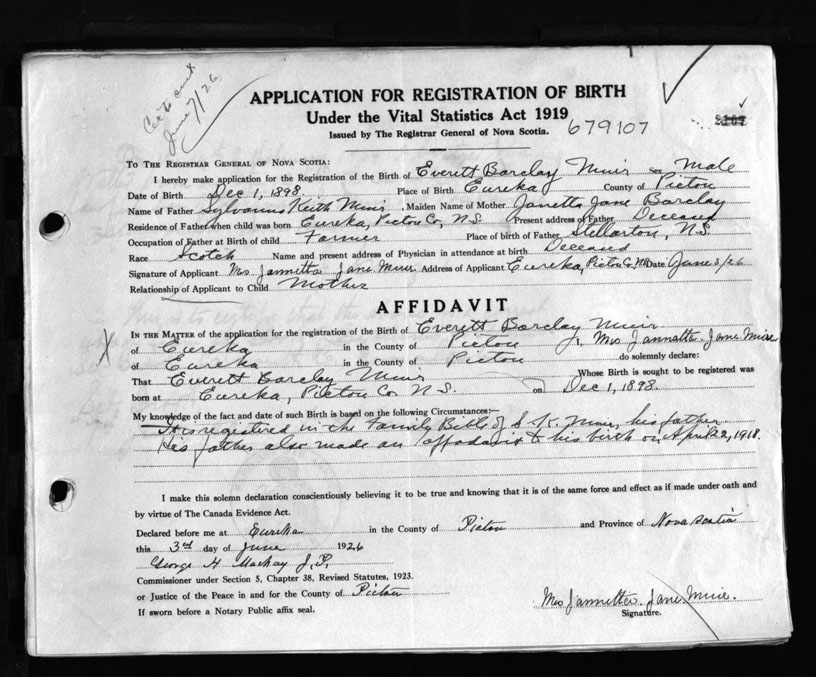 Cert sent
June 7/26
APPLICATION FOR REGISTRATION OF BIRTH
Under the Vital Statistics Act 1919
Issued by The Registrar General of Nova Scotia.
679107
TO THE REGISTRAR GENERAL OF NOVA SCOTIA:
I hereby make application for the Registration of the Birth of Everett Barclay Muir Sex Male
Date of Birth Dec 1, 1898. Place of Birth Eureka County of Pictou
Name of Father Sylvanus Keith Muir. Maiden Name of Mother Janetta Jane Barclay
Residence of Father when child was born Eureka, Pictou Co, N.S. Present address of Father Deceased
Occupation of Father at Birth of child Farmer Place of birth of Father, Stellarton, N.S.
Race Scotch Name and present address of Physician in attendance at birth Deceased
Signature of Applicant Mrs. Jannitta Jane Muir Address of Applicant Eureka, Pictou Co, NS Date June 3/26
Relationship of Applicant to Child Mother
AFFIDAVIT
IN THE MATTER of the application for the registration of the Birth of Everett Barclay Muir
of Eureka in the County of Pictou I, Mrs Jannatta Jane Muire
of Eureka in the County of Pictou do solemnly declare:
That Everett Barclay Muir Whose Birth is sought to be registered was
born at Eureka, Pictou Co. N.S. on Dec 1, 1898.
My knowledge of the fact and date of such Birth is based on the following Circumstances:—
It is registered in the Family Bible of S. K. Muir, his father
His father also made an affadavit to his birth on April 22, 1918.
I make this solemn declaration conscientiously believing it to be true and knowing that it is of the same force and effect as if made under oath and
by virtue of The Canada Evidence Act.
Declared before me at Eureka in the County of Pictou and Province of Nova Scotia
this 3rd day of June 1926
George H Mackay J.P.
Commissioner under Section 5, Chapter 38, Revised Statutes, 1923.
or Justice of the Peace in and for the County of Pictou
If sworn before a Notary Public affix seal.
Mrs Jannitta Jane Muire.
Signature.